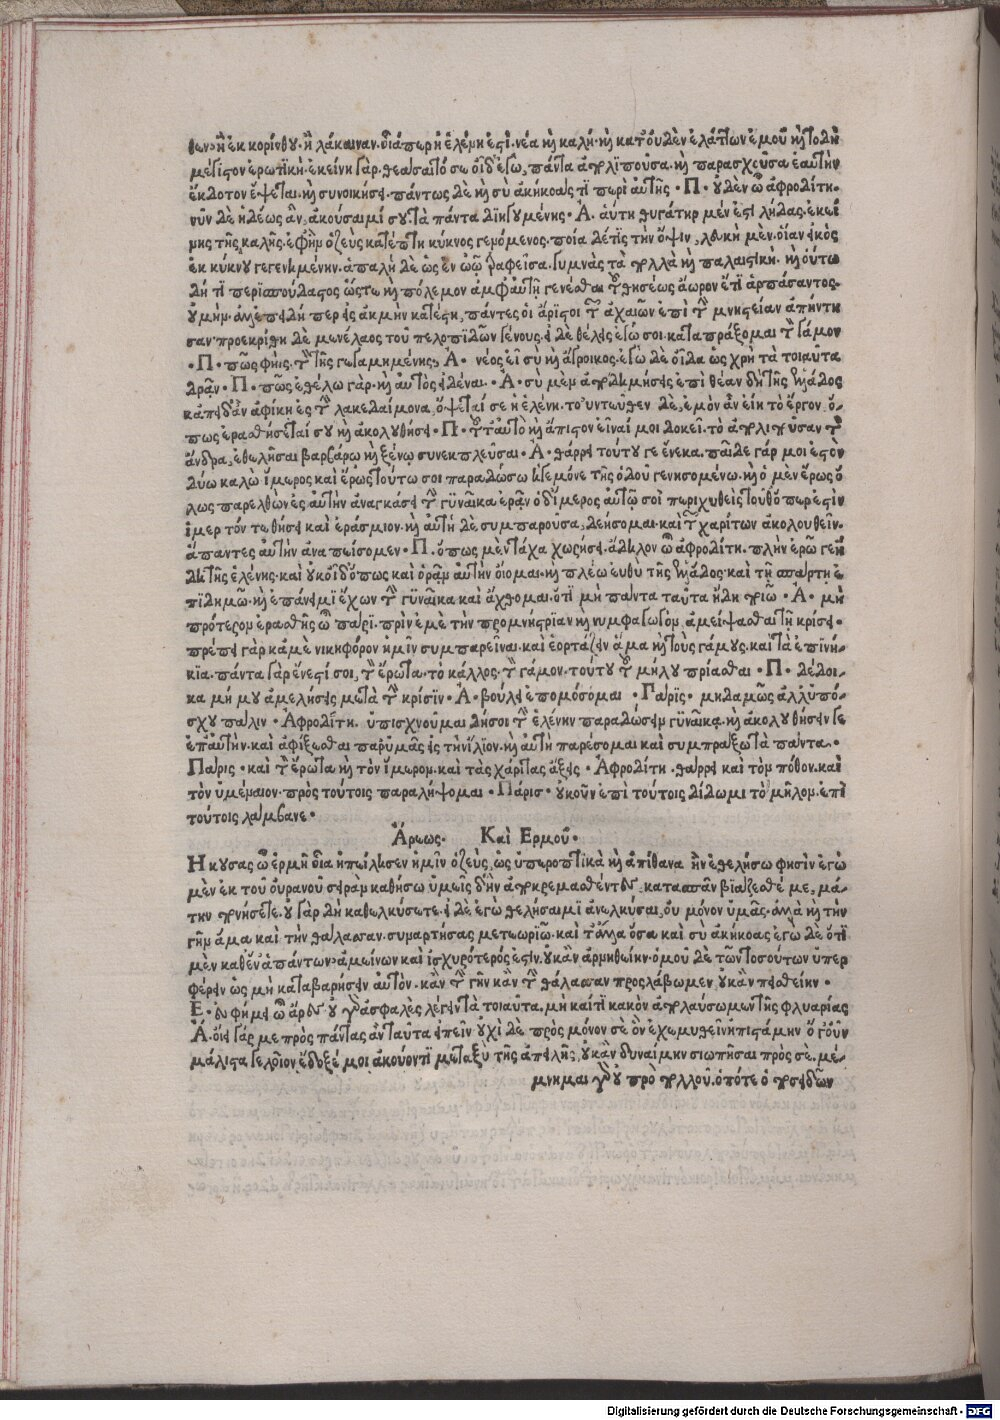 θων· ἢ ἐκ κορίνθου· ἢ λάκαιναν. οἵα περ ἡ ἑλένη ἐστὶ. νέα καὶ καλὴ· καὶ κατ' οὐδὲν ἐλάττων ἐμοῦ καὶ τὸ δὴ
μέγιστον ἐρωτικὴ. ἐκείνη γὰρ. θεάσαιτό σε οἶδ' ἐγὼ, πάντα ἀπολιποῦσα. καὶ παρασχοῦσα ἑαυτὴν
ἔκδοτον ἕψεται. καὶ συνοικήσει. πάντως δὲ καὶ σὺ ἀκήκοάς τι περὶ αὐτῆς · Π · οὐδὲν ὦ ἀφροδίτη.
νῦν δὲ ἡδέως ἂν ἀκούσαιμί σου. τὰ πάντα διηγουμένης · Α. αὕτη θυγάτηρ μέν ἐστι λήδας. ἐκεί
νης τῆς καλῆς. ἐφ' ἣν ὁ ζεὺς κατέπτη κύκνος γενόμενος. ποία δέ τις τὴν ὄψιν, λευκὴ μὲν. οἵαν εἰκὸς
ἐκ κύκνου γεγενημένην. ἁπαλὴ δὲ ὡς ἐν ὠῷ τραφεῖσα. γυμνὰς τὰ πολλὰ καὶ παλαιστικὴ. καὶ οὕτω
δή τι περισπούδαστος ὥστε καὶ πόλεμον ἀμφ' αὐτῇ γενέσθαι τοῦ θησέως ἄωρον ἔτι ἁρπάσαντος.
οὐ μὴν. ἀλλ' ἐπειδή περ εἰς ἀκμὴν κατέστη, πάντες οἱ ἄριστοι τῶν ἀχαιῶν ἐπὶ τὴν μνηστείαν ἀπήντη
σαν. προεκρίθη δὲ μενέλαος τοῦ πελοπιδῶν γένους. εἰ δὲ θέλεις ἐγώ σοι καταπράξομαι τὸν γάμον
· Π · πῶς φής. τὸν τῆς γεγαμημένης; Α · νέος εἶ σὺ καὶ ἄγροικος. ἐγὼ δὲ οἶδα ὡς χρὴ τὰ τοιαῦτα
δρᾶν · Π · πῶς; ἐθέλω γὰρ. καὶ αὐτὸς εἰδέναι · Α · σὺ μὲν ἀποδημήσεις ἐπὶ θέαν δὴ τῆς ἑλλάδος
κἀπειδὰν ἀφίκῃ ἐς τὴν λακεδαίμονα, ὄψεταί σε ἡ ἑλένη. τοὐντεῦθεν δὲ, ἐμὸν ἂν εἴη τὸ ἔργον, ὅ-
πως ἐρασθήσεταί σου καὶ ἀκολουθήσει · Π · τοῦτ' αὐτὸ καὶ ἄπιστον εἶναί μοι δοκεῖ. τὸ ἀπολιποῦσαν τὸν
ἄνδρα, ἐθελῆσαι βαρβάρῳ καὶ ξένῳ συνεκπλεῦσαι · Α · θάρρει τούτου γε ἕνεκα. παῖδε γάρ μοι ἐστὸν
δύω καλὼ ἵμερος καὶ ἔρως τούτω σοι παραδώσω ἡγεμόνε τῆς ὁδοῦ γενησομένω. καὶ ὁ μὲν ἔρως ὅ
λως παρελθὼν ἐς αὐτὴν ἀναγκάσει τὴν γυναῖκα ἐρᾶν ὁ δ' ἵμερος αὐτῷ σοὶ περιχυθεὶς τοῦθ' ὅπερ ἐστὶν
ἱμερτόν τε θήσει καὶ ἐράσμιον. καὶ αὐτὴ δὲ συμπαροῦσα, δεήσομαι καὶ τῶν χαρίτων ἀκολουθεῖν.
ἅπαντες αὐτὴν ἀναπείσομεν · Π. ὅπως μὲν ταῦτα χωρήσει. ἄδηλον ὦ ἀφροδίτη. πλὴν ἐρῶ γε ἤ
δη τῆς ἑλένης. καὶ οὐκ οἶδ' ὅπως καὶ ὁρᾶν αὐτὴν οἴομαι. καὶ πλέω εὐθὺ τῆς ἑλλάδος. καὶ τῇ σπάρτῃ ἐ
πιδημῶ. καὶ ἐπάνειμι ἔχων τὴν γυναῖκα καὶ ἄχθομαι. ὅτι μὴ πάντα ταῦτα ἤδη ποιῶ · Α · μὴ
πρότερον ἐρασθῇς ὦ πάρι. πρὶν ἐμὲ τὴν προμνήστριαν καὶ νυμφαγωγὸν, ἀμείψασθαι τῇ κρίσει.
πρέπει γὰρ κἀμὲ νικηφόρον ὑμῖν συμπαρεῖναι. καὶ ἑορτάζειν ἅμα καὶ τοὺς γάμους. καὶ τὰ ἐπινί-
κια. πάντα γὰρ ἔνεστί σοι, τὸν ἔρωτα. τὸ κάλλος. τὸν γάμον. τούτου τοῦ μήλου πρίασθαι · Π · δέδοι-
κα μή μου ἀμελήσῃς μετὰ τὴν κρίσιν · Α · βούλει ἐπομόσομαι · Πάρις · μηδαμῶς ἀλλ' ὑπό-
σχου πάλιν · Ἀφροδίτη. ὑπισχνοῦμαι δή σοι τὴν ἑλένην παραδώσειν γυναῖκα. καὶ ἀκολουθήσειν γε
ἐπ' αὐτὴν. καὶ ἀφίξεσθαι παρ' ὑμᾶς εἰς τὴν ἴλιον. καὶ αὐτὴ παρέσομαι καὶ συμπράξω τὰ πάντα ·
Πάρις · καὶ τὸν ἔρωτα καὶ τὸν ἵμερον. καὶ τὰς χάριτας ἄξεις · Ἀφροδίτη. θάρρει καὶ τὸν πόθον. καὶ
τὸν ὑμέναιον. πρὸς τούτοις παραλήψομαι · Πάρις · οὐκοῦν ἐπὶ τούτοις δίδωμι τὸ μῆλον. ἐπὶ
τούτοις λάμβανε ·
Ἄρεως · Καὶ Ἑρμοῦ ·
Ηκουσας ὦ ἑρμῆ οἷα ἠπείλησεν ἡμῖν ὁ ζεὺς, ὡς ὑπεροπτικὰ καὶ ἀπίθανα ἢν ἐθελήσω φησὶν ἐγὼ
μὲν ἐκ τοῦ οὐρανοῦ σειρὰν καθήσω ὑμεῖς δ' ἢν ἀποκρεμασθέντες, κατασπᾶν βιάζεσθέ με, μά-
την πονήσετε. οὐ γὰρ δὴ καθελκύσετε. εἰ δὲ ἐγὼ θελήσαιμι ἀνελκύσαι, οὐ μόνον ὑμᾶς. ἀλλὰ καὶ τὴν
γῆν ἅμα καὶ τὴν θάλασσαν. συναρτήσας μετεωριῶ. καὶ τἄλλα ὅσα καὶ σὺ ἀκήκοας ἐγὼ δὲ ὅτι
μὲν καθ' ἕν' ἁπάντων ἀμείνων καὶ ἰσχυρότερός ἐστιν. οὐκ ἂν ἀρνηθείην. ὁμοῦ δὲ τῶν τοσούτων ὑπερ
φέρειν ὡς μὴ καταβαρήσειν αὐτὸν. κἂν τὴν γῆν κἂν τὴν θάλασσαν προσλάβωμεν, οὐκ ἂν πεισθείην ·
Ε · εὐφήμει ὦ ἄρες οὐ γὰρ ἀσφαλὲς λέγειν τὰ τοιαῦτα. μὴ καί τι κακὸν ἀπολαύσωμεν τῆς φλυαρίας
Α. οἴει γάρ με πρὸς πάντας ἂν ταῦτα εἰπεῖν οὐχὶ δὲ πρὸς μόνον σὲ ὃν ἐχεμυθεῖν ἠπιστάμην ὃ γοῦν
μάλιστα γελοῖον ἔδοξέ μοι ἀκούοντι μεταξὺ τῆς ἀπειλῆς, οὐκ ἂν δυναίμην σιωπῆσαι πρὸς σὲ. μέ-
μνημαι γὰρ οὐ πρὸ πολλοῦ. ὁπότε ὁ ποσειδῶν
Digitalisierung gefördert durch die Deutsche Forschungsgemeinschaft - DFG